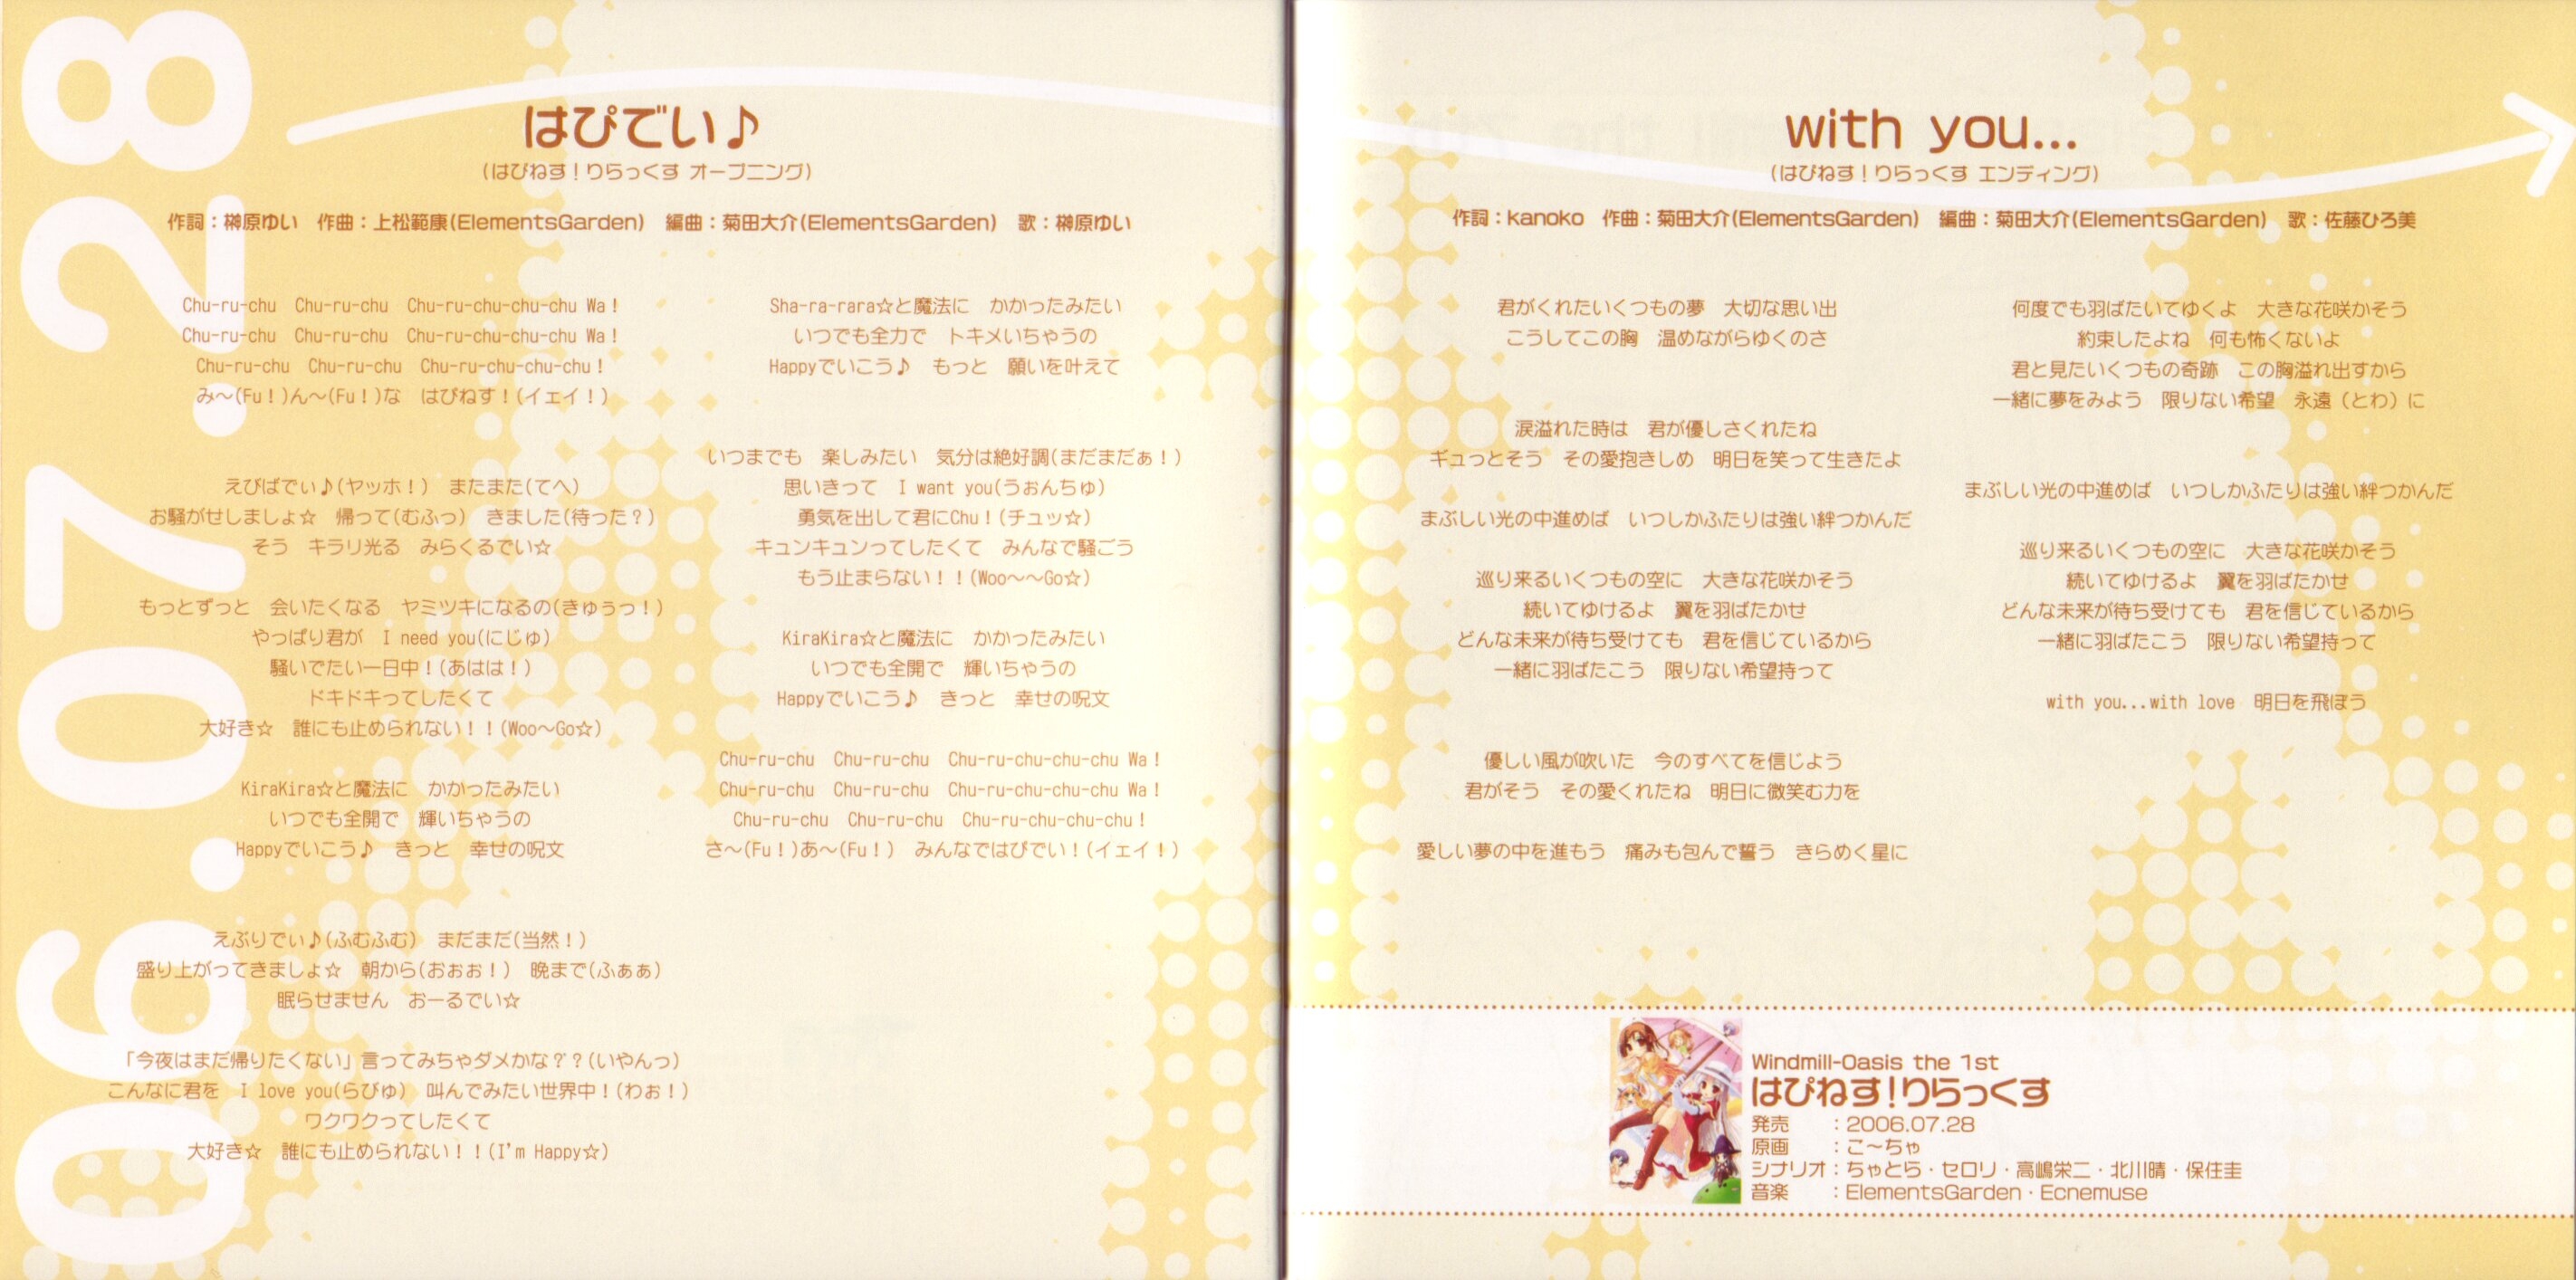 06.07.28
はぴでい♪
(はぴねす！りらっくす オープニング)
作詞：榊原ゆい　作曲：上松範康(ElementsGarden)　編曲：菊田大介(ElementsGarden)　歌：榊原ゆい
Chu-ru-chu　Chu-ru-chu　Chu-ru-chu-chu-chu Wa！
Chu-ru-chu　Chu-ru-chu　Chu-ru-chu-chu-chu Wa！
Chu-ru-chu　Chu-ru-chu　Chu-ru-chu-chu-chu！
み～(Fu！)ん～(Fu！)な　はぴねす！(イェイ！)
えびばでぃ♪(ヤッホ！)　またまた(てへ)
お騒がせしましょ☆　帰って(むふっ)　きました(待った？)
そう　キラリ光る　みらくるでい☆
もっとずっと　会いたくなる　ヤミツキになるの(きゅぅっ！)
やっぱり君が　I need you(にじゅ)
騒いでたい一日中！(あはは！)
ドキドキってしたくて
大好き☆　誰にも止められない！！(Woo～Go☆)
KiraKira☆と魔法に　かかったみたい
いつでも全開で　輝いちゃうの
Happyでいこう♪　きっと　幸せの呪文
えぶりでぃ♪(ふむふむ)　まだまだ(当然！)
盛り上がってきましょ☆　朝から(おぉぉ！)　晩まで(ふぁぁ)
眠らせません　おーるでい☆
「今夜はまだ帰りたくない」言ってみちゃダメかな？？(いやんっ)
こんなに君を　I love you(らびゅ)　叫んでみたい世界中！(わぉ！)
ワクワクってしたくて
大好き☆　誰にも止められない！！(I'm Happy☆)
Sha-ra-rara☆と魔法に　かかったみたい
いつでも全力で　トキメいちゃうの
Happyでいこう♪　もっと　願いを叶えて
いつまでも　楽しみたい　気分は絶好調(まだまだぁ！)
思いきって　I want you(うぉんちゅ)
勇気を出して君にChu！(チュッ☆)
キュンキュンってしたくて　みんなで騒ごう
もう止まらない！！(Woo～～Go☆)
KiraKira☆と魔法に　かかったみたい
いつでも全開で　輝いちゃうの
Happyでいこう♪　きっと　幸せの呪文
Chu-ru-chu　Chu-ru-chu　Chu-ru-chu-chu-chu Wa！
Chu-ru-chu　Chu-ru-chu　Chu-ru-chu-chu-chu Wa！
Chu-ru-chu　Chu-ru-chu　Chu-ru-chu-chu-chu！
さ～(Fu！)あ～(Fu！)　みんなではぴでい！(イェイ！)
with you...
(はぴねす！りらっくす エンディング)
作詞：kanoko　作曲：菊田大介(ElementsGarden)　編曲：菊田大介(ElementsGarden)　歌：佐藤ひろ美
君がくれたいくつもの夢　大切な思い出
こうしてこの胸　温めながらゆくのさ
涙溢れた時は　君が優しさくれたね
ギュっとそう　その愛抱きしめ　明日を笑って生きたよ
まぶしい光の中進めば　いつしかふたりは強い絆つかんだ
巡り来るいくつもの空に　大きな花咲かそう
続いてゆけるよ　翼を羽ばたかせ
どんな未来が待ち受けても　君を信じているから
一緒に羽ばたこう　限りない希望持って
優しい風が吹いた　今のすべてを信じよう
君がそう　その愛くれたね　明日に微笑む力を
愛しい夢の中を進もう　痛みも包んで誓う　きらめく星に
何度でも羽ばたいてゆくよ　大きな花咲かそう
約束したよね　何も怖くないよ
君と見たいくつもの奇跡　この胸溢れ出すから
一緒に夢をみよう　限りない希望　永遠（とわ）に
まぶしい光の中進めば　いつしかふたりは強い絆つかんだ
巡り来るいくつもの空に　大きな花咲かそう
続いてゆけるよ　翼を羽ばたかせ
どんな未来が待ち受けても　君を信じているから
一緒に羽ばたこう　限りない希望持って
with you...with love　明日を飛ぼう
Windmill-Oasis the 1st
はぴねす！りらっくす
発売　　：2006.07.28
原画　　：こ～ちゃ
シナリオ：ちゃとら・セロリ・高嶋栄二・北川晴・保住圭
音楽　　：ElementsGarden・Ecnemuse